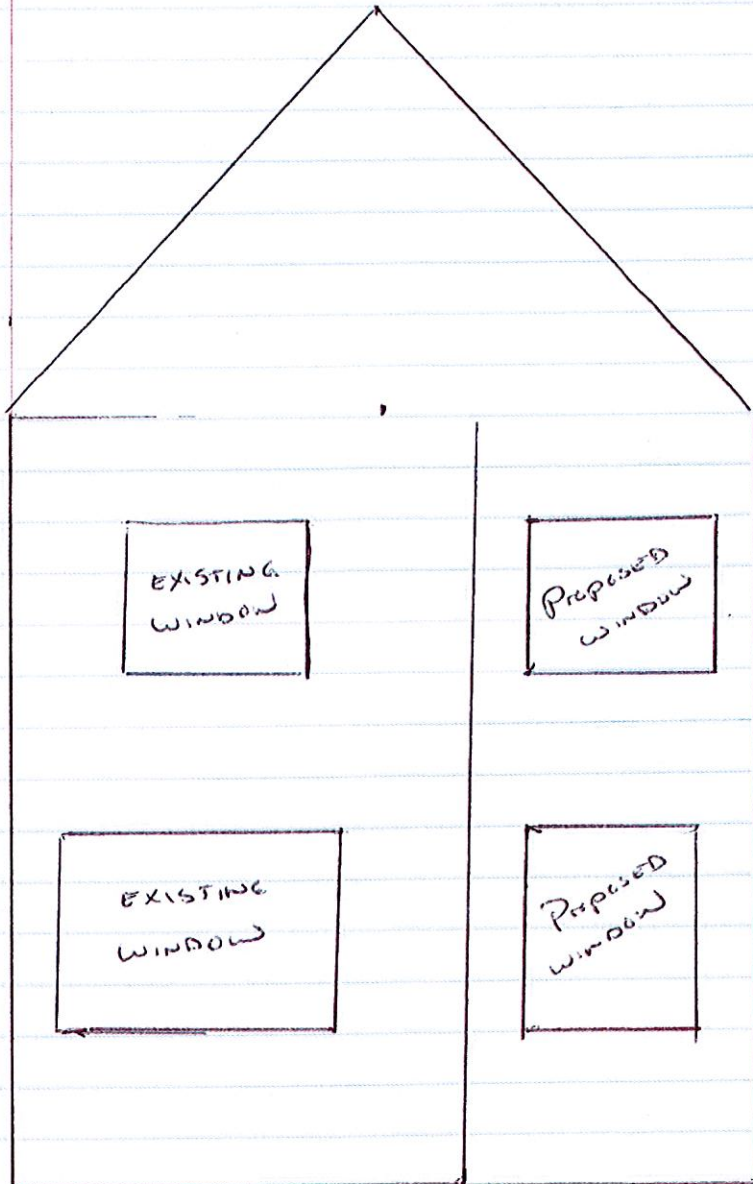 EXISTING
WINDOW
PROPOSED
WINDOW
EXISTING
WINDOW
PROPOSED
WINDOW